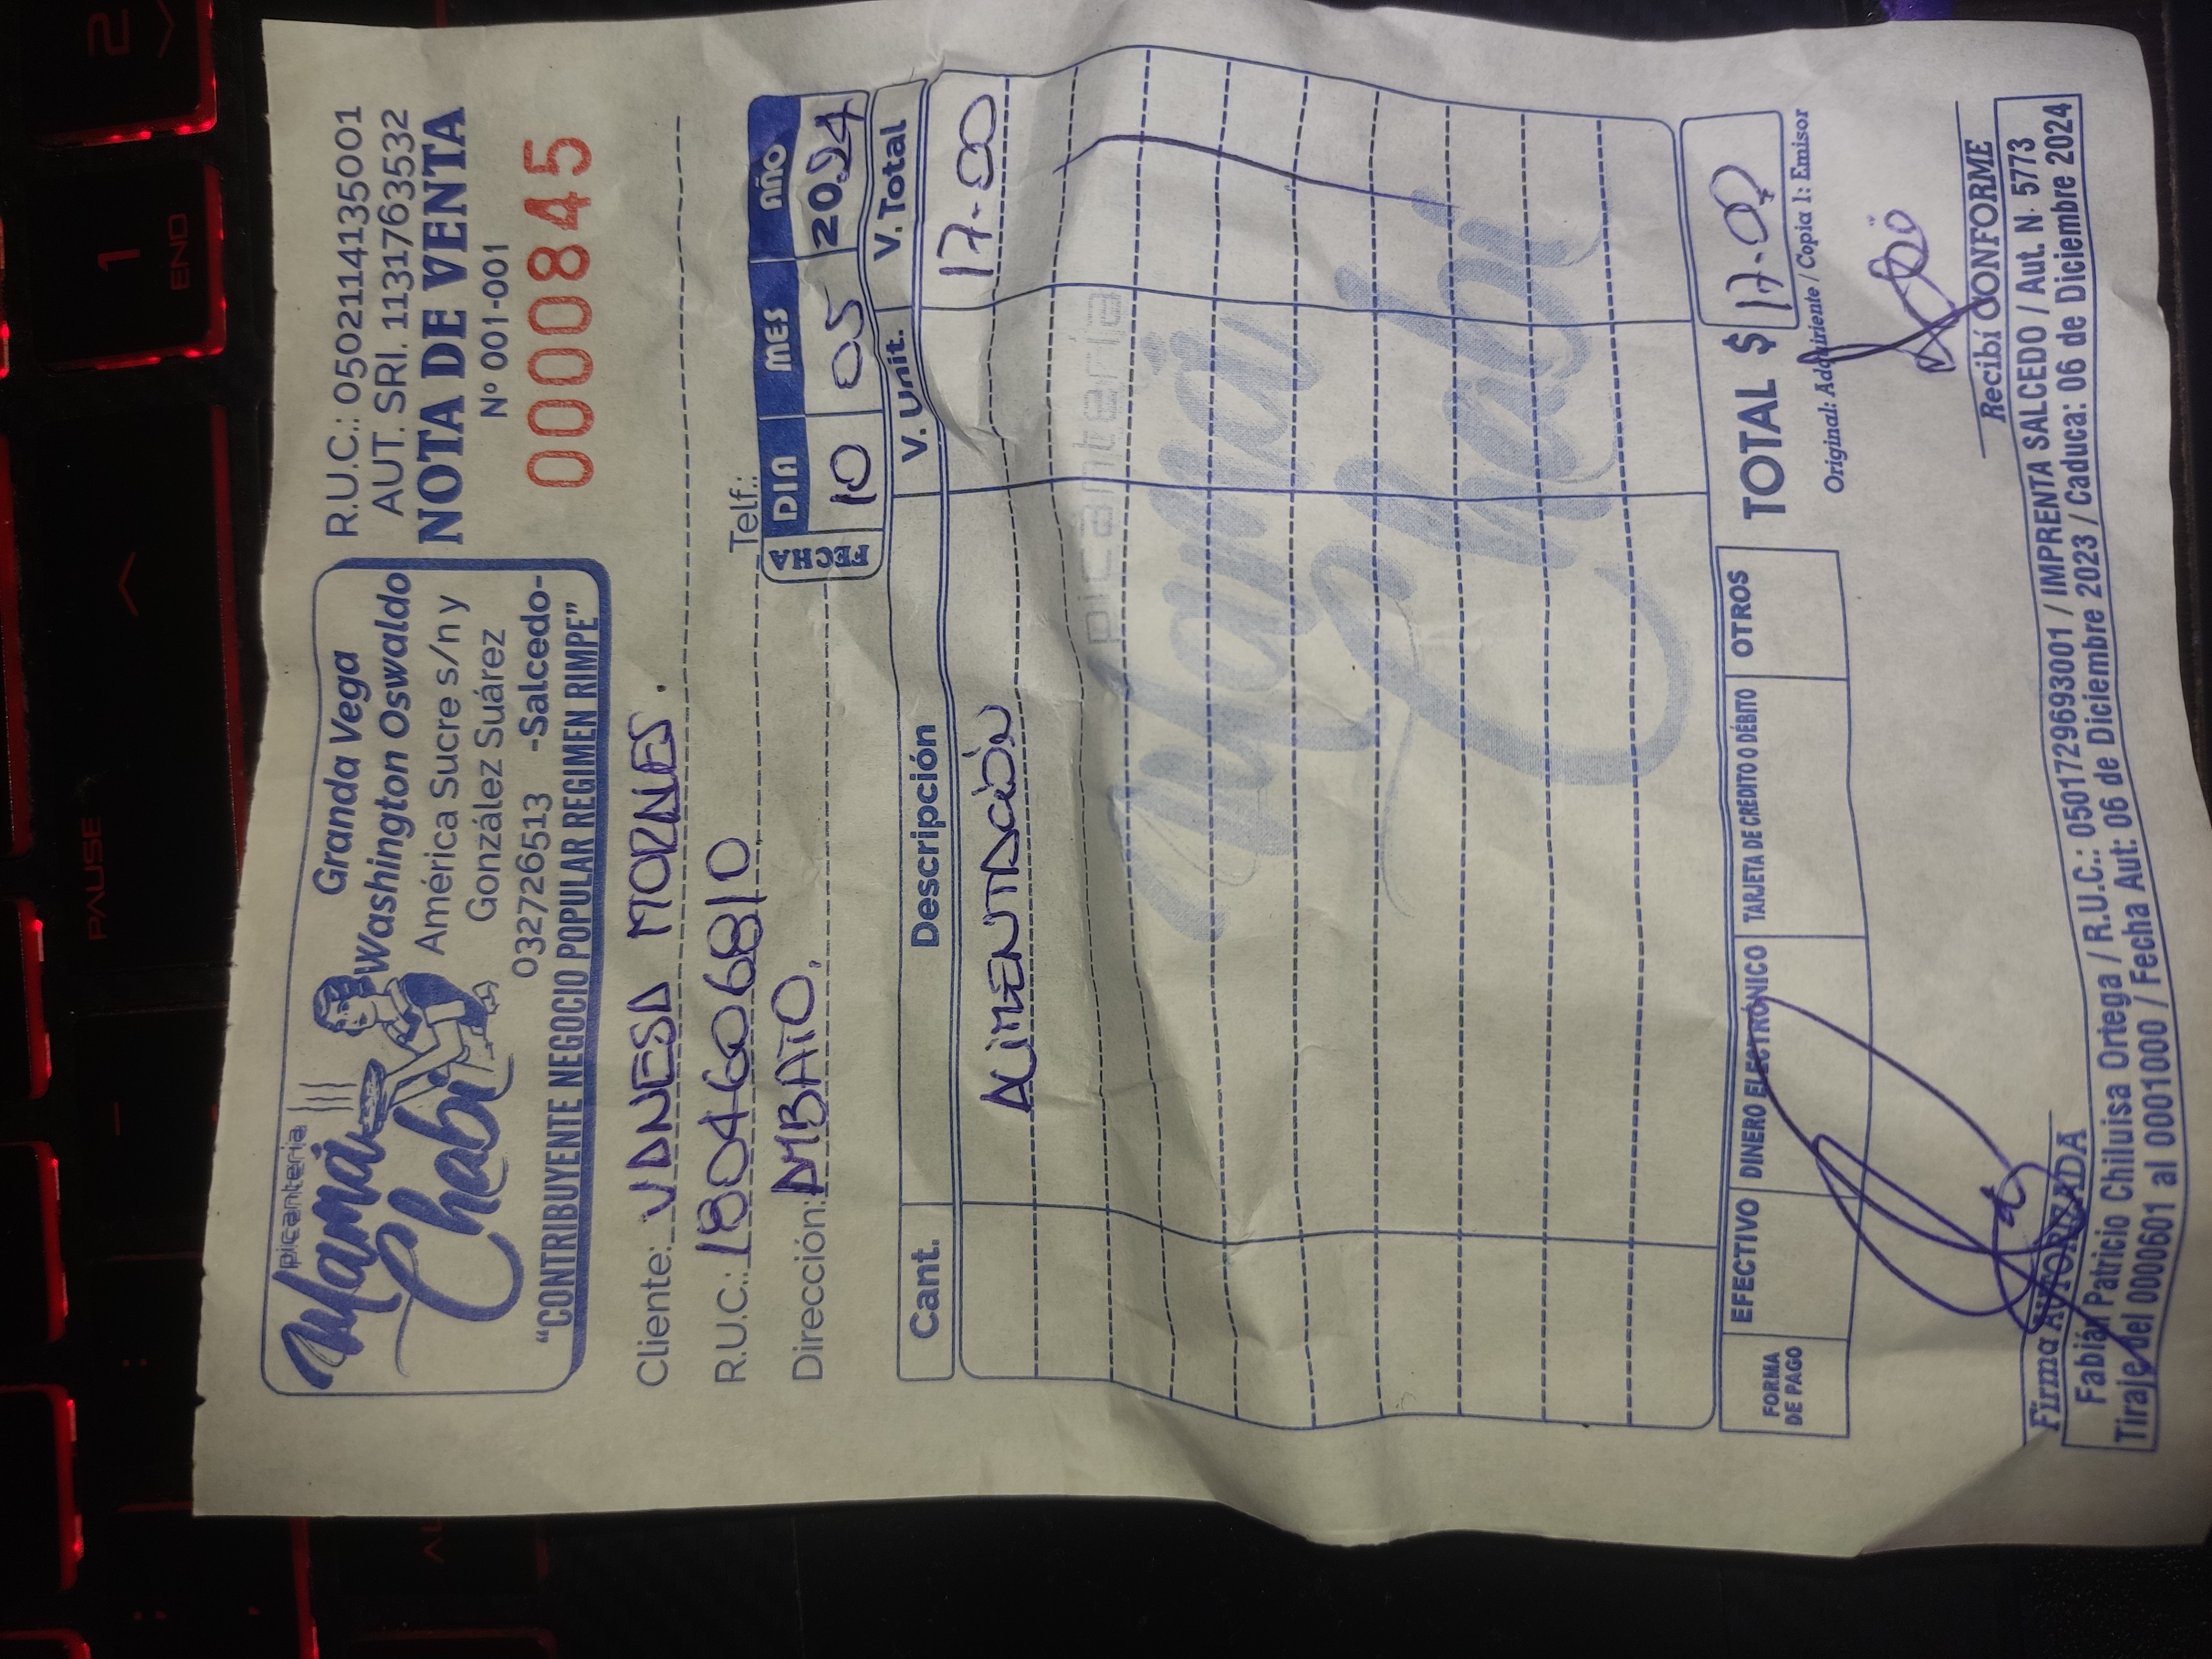 PAUSE
1
END
2
picantería
Mamá
Chabi
Granda Vega
Washington Oswaldo
América Sucre s/n y
González Suárez
032726513 -Salcedo-
"CONTRIBUYENTE NEGOCIO POPULAR REGIMEN RIMPE"
R.U.C.: 0502114135001
AUT. SRI. 1131763532
NOTA DE VENTA
Nº 001-001
0000845
Cliente: VANESA MORALES.
R.U.C.: 1804606810
Telf.:
Dirección: AMBATO.
FECHA
DIA MES AÑO
10 05 2024
Cant. Descripción V. Unit. V. Total
ALIMENTACIÓN 17-00
picantería
Mamá
Chabi
FORMA
DE PAGO
EFECTIVO DINERO ELECTRÓNICO TARJETA DE CRÉDITO O DÉBITO OTROS
TOTAL $ 17-00
Original: Adquiriente / Copia 1: Emisor
Recibí CONFORME
Firma AUTORIZADA
Fabián Patricio Chiluisa Ortega / R.U.C.: 0501729693001 / IMPRENTA SALCEDO / Aut. N. 5773
Tiraje del 0000601 al 0001000 / Fecha Aut: 06 de Diciembre 2023 / Caduca: 06 de Diciembre 2024